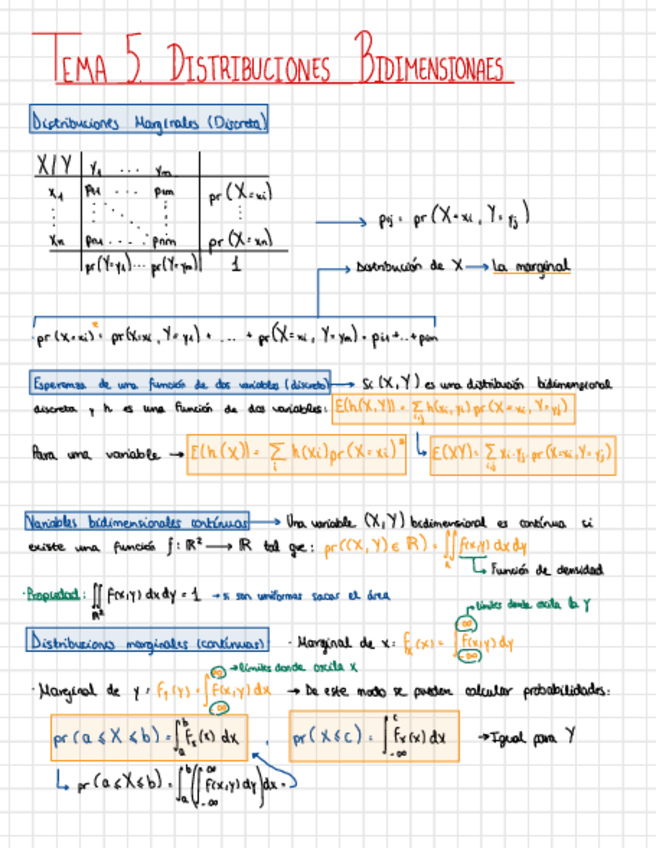 TEMA 5 DISTRIBUCIONES BIDIMENSIONAES
Distribuciones Marginales (Discreta)
X/Y y₁ ... yₘ
x₁ p₁₁ ... p₁ₘ pr(X=xᵢ)
⋮ ⋮ ⋱ ⋮ ⋮
xₙ pₙ₁ ... pₙₘ pr(X=xₙ)
pr(Y=y₁) ... pr(Y=yₘ) 1
→ pᵢⱼ = pr(X=xᵢ, Y=yⱼ)
→ Distribución de X → La marginal
pr(X=xᵢ)* = pr(X=xᵢ, Y=y₁) + ... + pr(X=xᵢ, Y=yₘ) = pᵢ₁+...+pᵢₘ
Esperanza de una función de dos variables (discreto) → Si (X,Y) es una distribución bidimensional
discreta y h es una función de dos variables: E(h(X,Y)) = Σᵢⱼ h(xᵢ,yⱼ) pr(X=xᵢ, Y=yⱼ)
Para una variable → E(h(X)) = Σᵢ h(xᵢ)pr(X=xᵢ)* ↳ E(XY) = Σᵢⱼ xᵢ·yⱼ·pr(X=xᵢ,Y=yⱼ)
Variables bidimensionales contínuas → Una variable (X,Y) bidimensional es contínua si
existe una función f: ℝ² → ℝ tal que: pr((X,Y)∈ R) = ∬ f(x,y) dx dy
↳ Función de densidad
·Propiedad: ∬ℝ² f(x,y) dx dy = 1 → si son uniformes sacar el área
→ límites donde oscila la Y
Distribuciones marginales (contínuas) · Marginal de x: fₓ(x) = ∫₋∞^∞ f(x,y) dy
→ límites donde oscila x
· Marginal de y: fᵧ(y) = ∫₋∞^∞ f(x,y) dx → De este modo se pueden calcular probabilidades:
pr(a≤X≤b) = ∫ₐᵇ fₓ(x) dx , pr(X≤c) = ∫₋∞ᶜ fₓ(x) dx → Igual para Y
↳ pr(a≤X≤b) = ∫ₐᵇ(∫₋∞^∞ f(x,y) dy)dx =